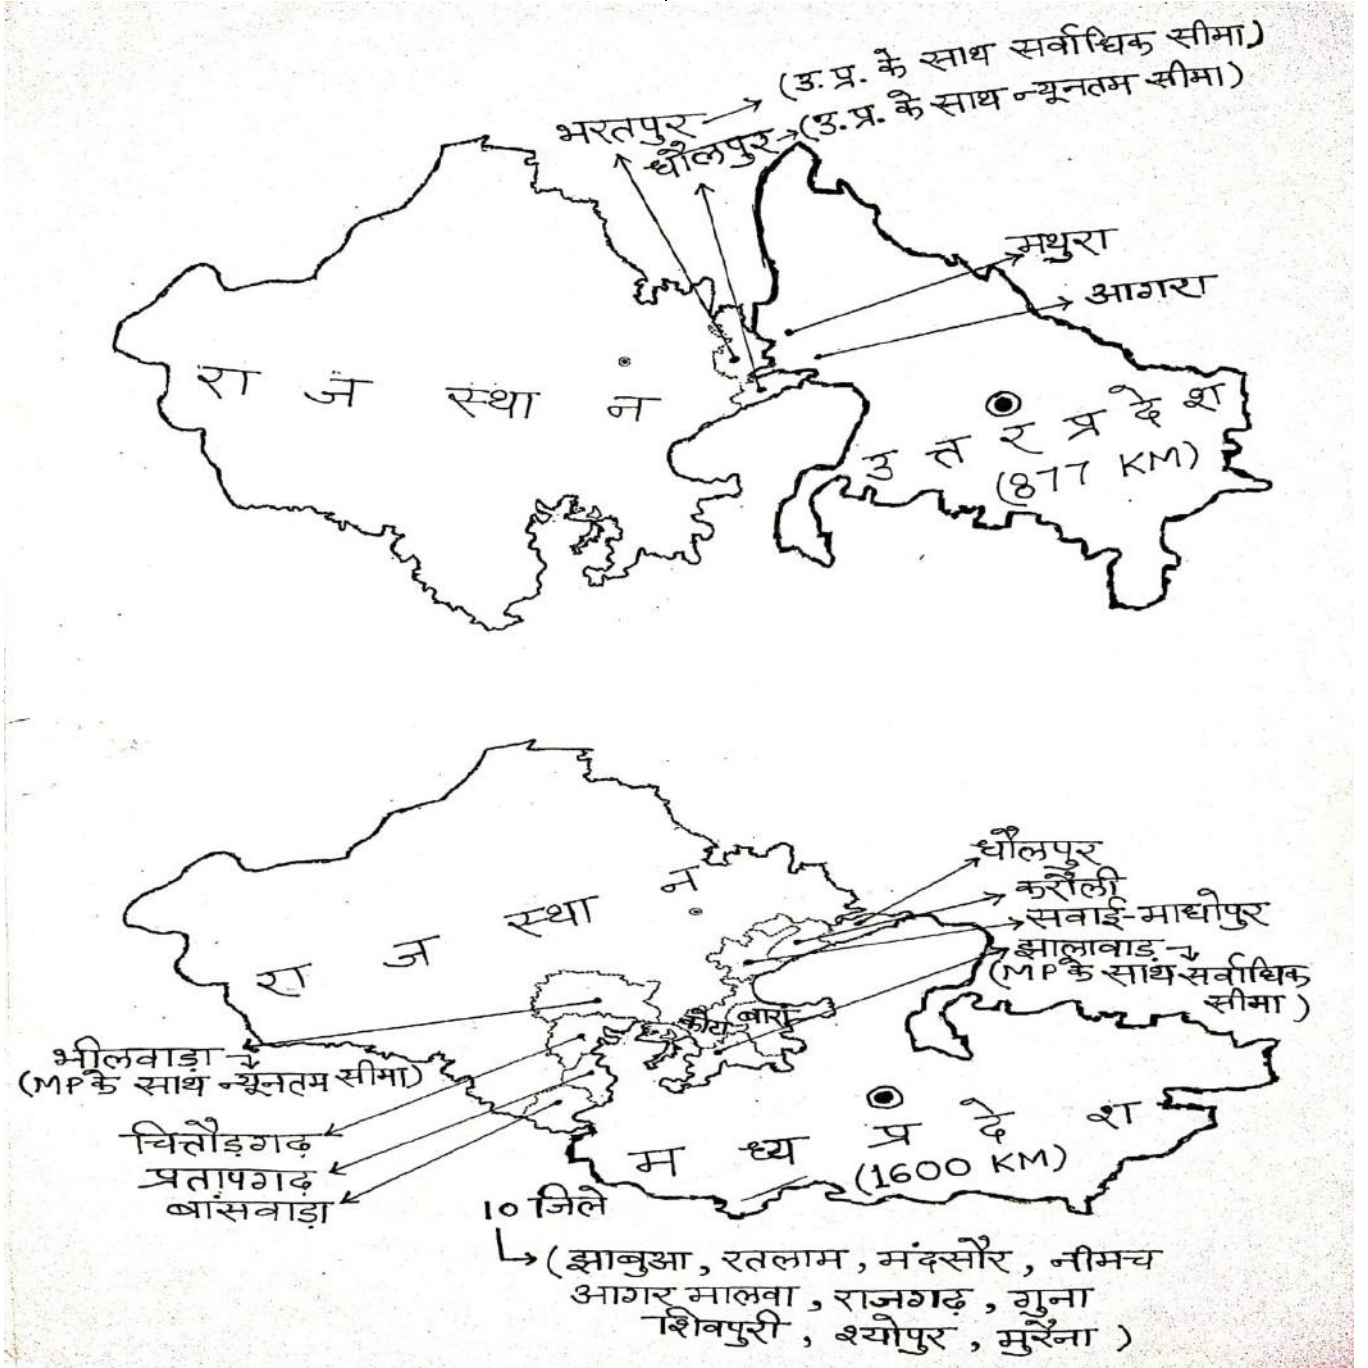 भरतपुर → (उ.प्र. के साथ सर्वाधिक सीमा)
धौलपुर → (उ.प्र. के साथ न्यूनतम सीमा)
मथुरा
आगरा
रा ज स्था न
उ त्त र प्र दे श
(877 KM)
धौलपुर
करौली
सवाई-माधोपुर
झालावाड़
(MP के साथ सर्वाधिक
सीमा)
रा ज स्था न
कोटा बारां
भीलवाड़ा
(MP के साथ न्यूनतम सीमा)
चित्तौड़गढ़
प्रतापगढ़
बांसवाड़ा
म ध्य प्र दे श
(1600 KM)
10 जिले
(झाबुआ, रतलाम, मंदसौर, नीमच
आगर मालवा, राजगढ़, गुना
शिवपुरी, श्योपुर, मुरैना)